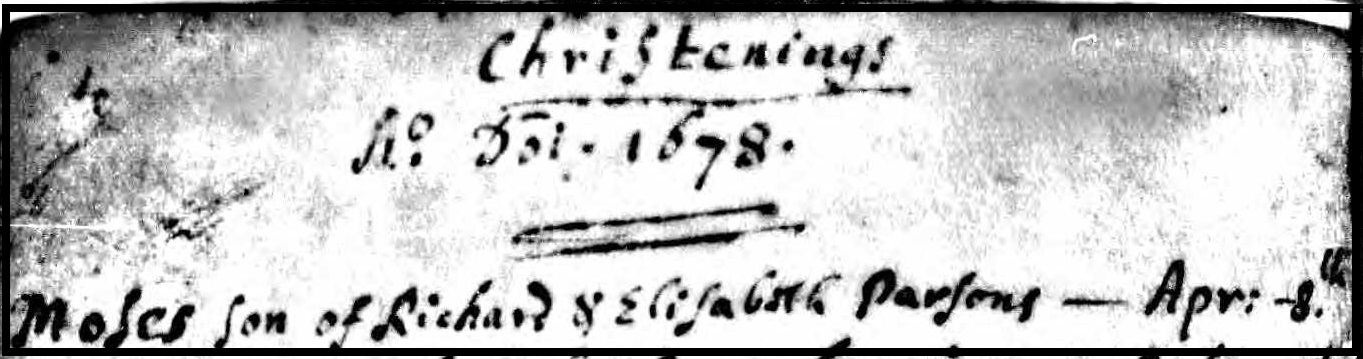 Christenings
Ao: Doi. 1678.
Moses son of Richard & Elisabeth Parsons — Apr: 8.th